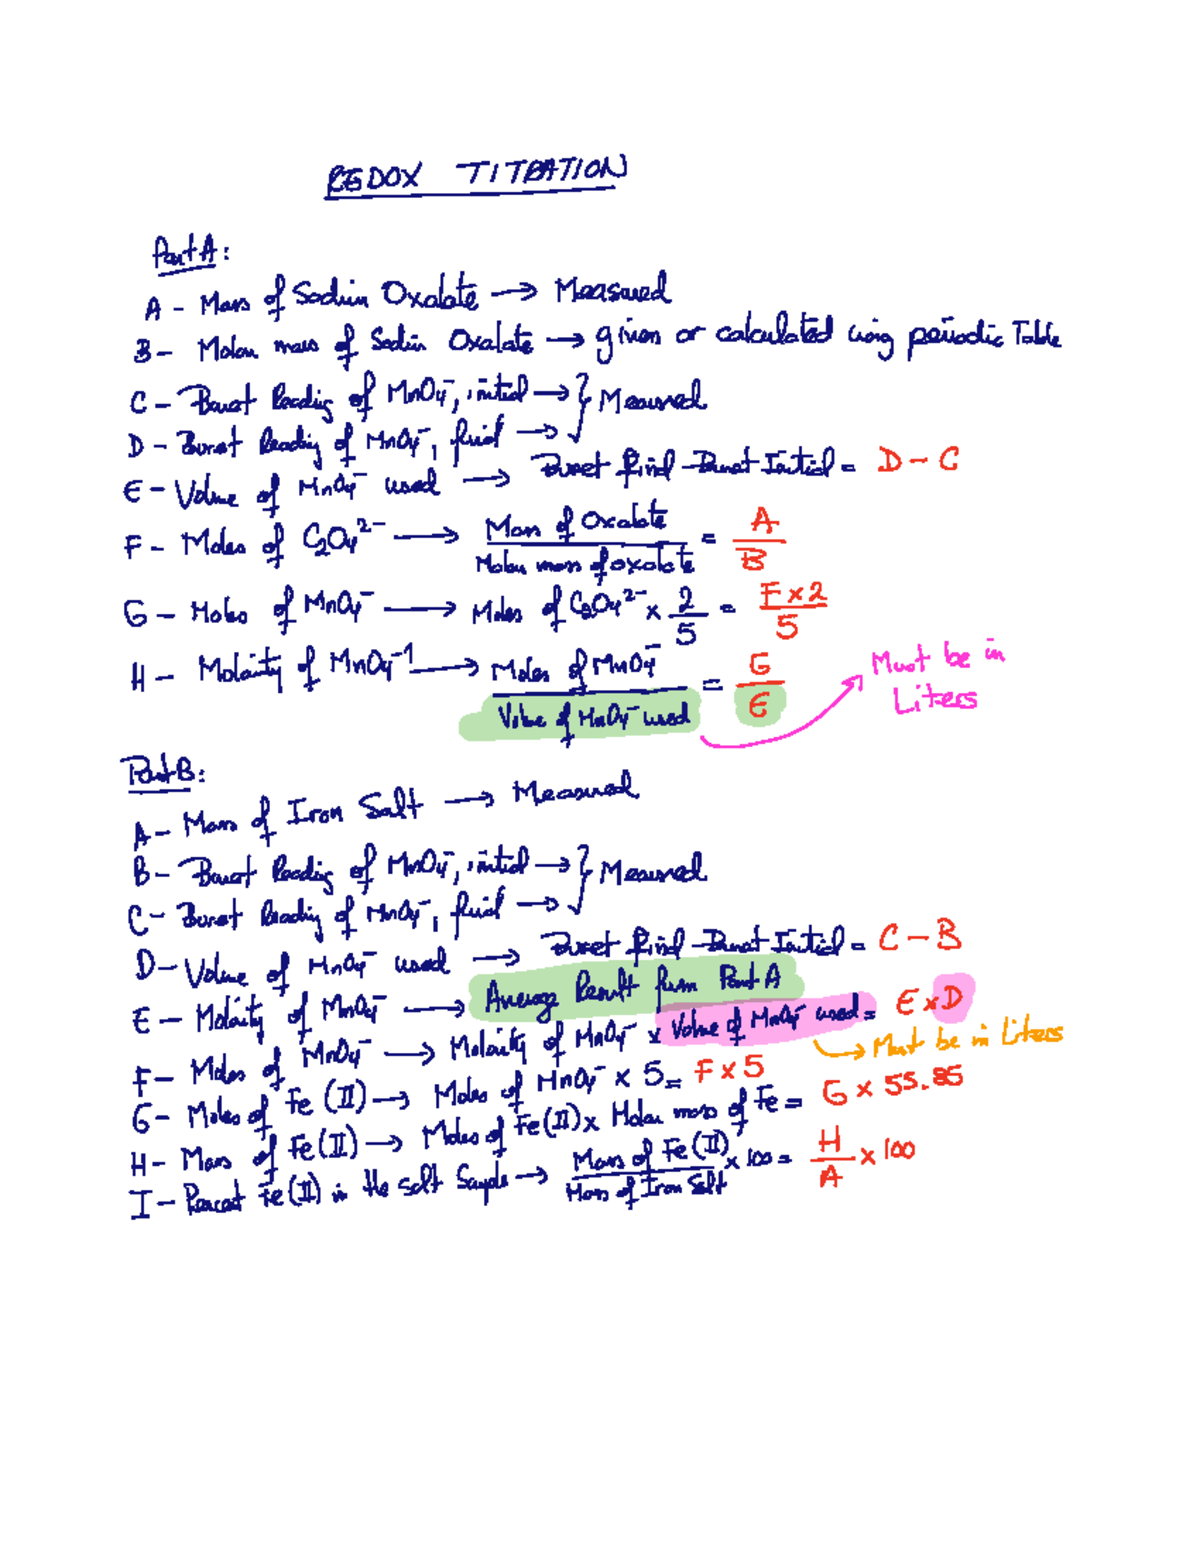 REDOX TITRATION
Part A:
A - Mass of Sodium Oxalate → Measured
B - Molar mass of Sodium Oxalate → given or calculated using periodic Table
C - Buret Reading of MnO4⁻, initial → } Measured
D - Buret Reading of MnO4⁻, final →
E - Volume of MnO4⁻ used → Buret final - Buret Initial = D - C
F - Moles of C2O4²⁻ → Mass of Oxalate / Molar mass of oxalate = A / B
G - Moles of MnO4⁻ → Moles of C2O4²⁻ × 2/5 = F×2 / 5
H - Molarity of MnO4⁻¹ → Moles of MnO4⁻ / Volume of MnO4⁻ used = G / E
Must be in
Liters
Part B:
A - Mass of Iron Salt → Measured
B - Buret Reading of MnO4⁻, initial → } Measured
C - Buret Reading of MnO4⁻, final →
D - Volume of MnO4⁻ used → Buret final - Buret Initial = C - B
E - Molarity of MnO4⁻ → Average Result from Part A
F - Moles of MnO4⁻ → Molarity of MnO4⁻ × Volume of MnO4⁻ used = E × D
→ Must be in Liters
G - Moles of Fe (II) → Moles of MnO4⁻ × 5 = F × 5
H - Mass of Fe (II) → Moles of Fe (II) × Molar mass of Fe = G × 55.85
I - Percent Fe (II) in the salt Sample → Mass of Fe (II) / Mass of Iron Salt × 100 = H / A × 100